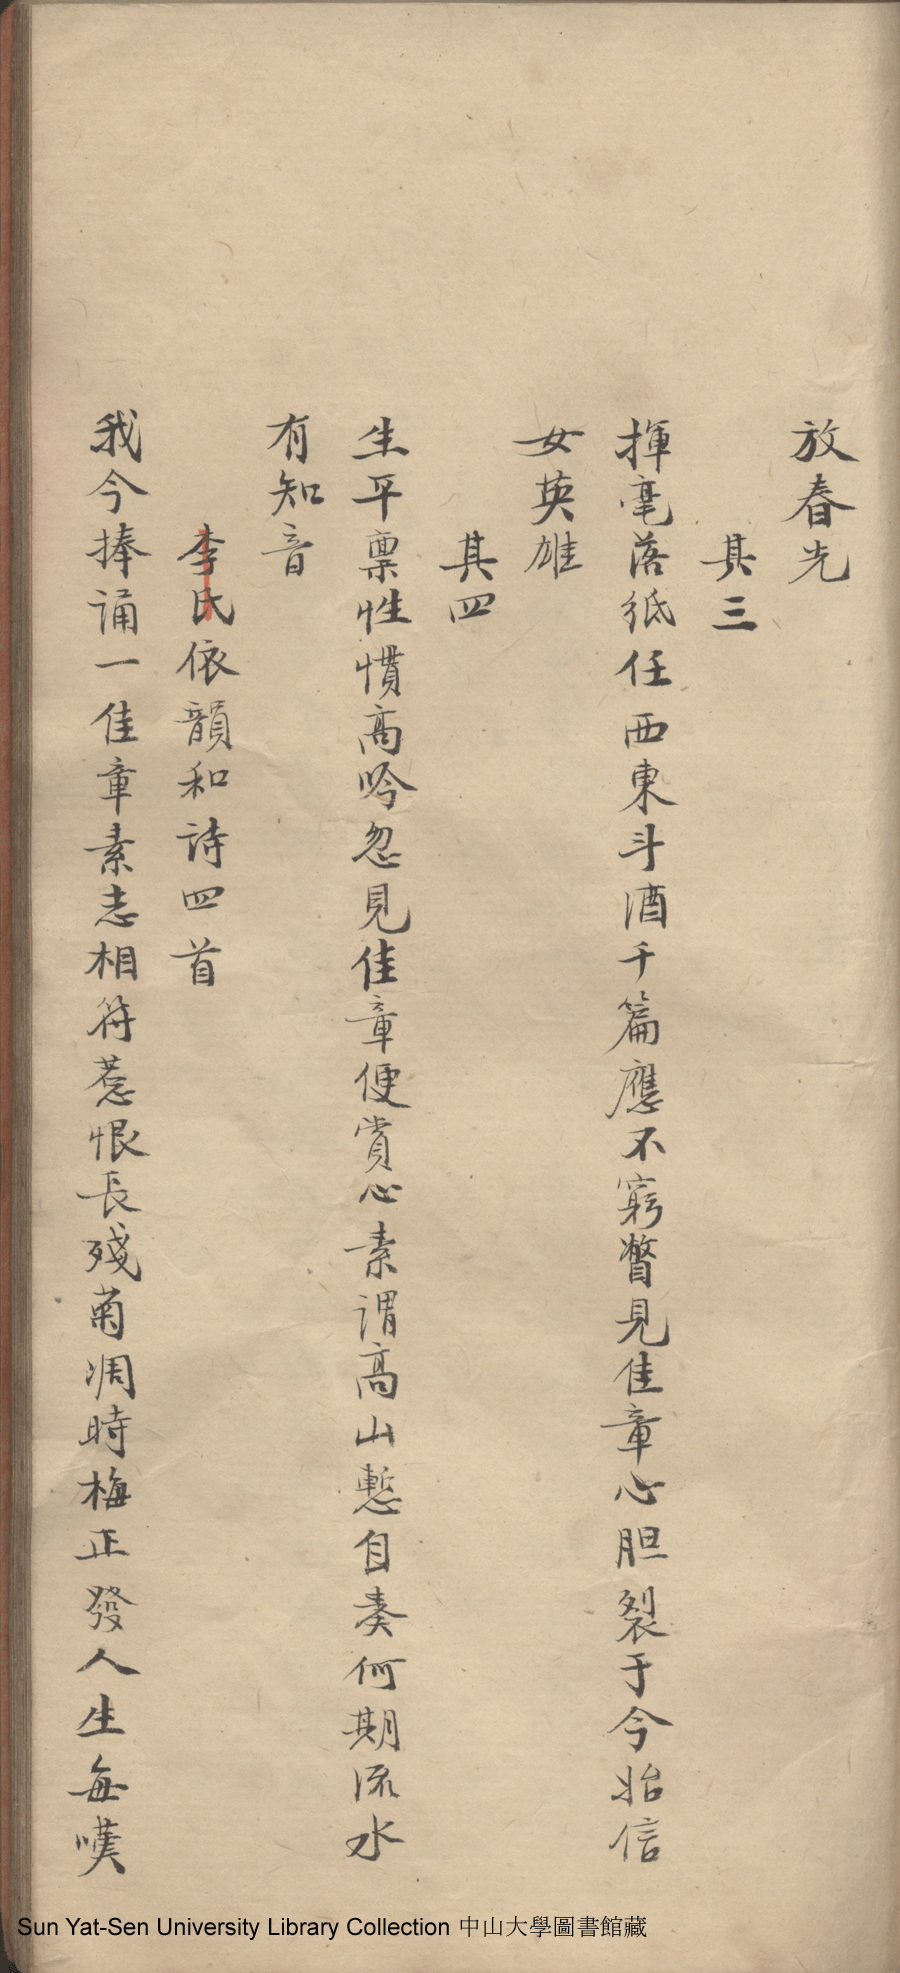 放春光
其三
揮毫落紙任西東斗酒千篇應不窮瞥見佳章心胆裂于今始信
女英雄
其四
生平稟性慣高吟忽見佳章便賞心素謂高山慙自奏何期流水
有知音
李氏依韻和詩四首
我今捧誦一佳章素志相符惹恨長殘菊凋時梅正發人生每嘆
Sun Yat-Sen University Library Collection 中山大學圖書館藏